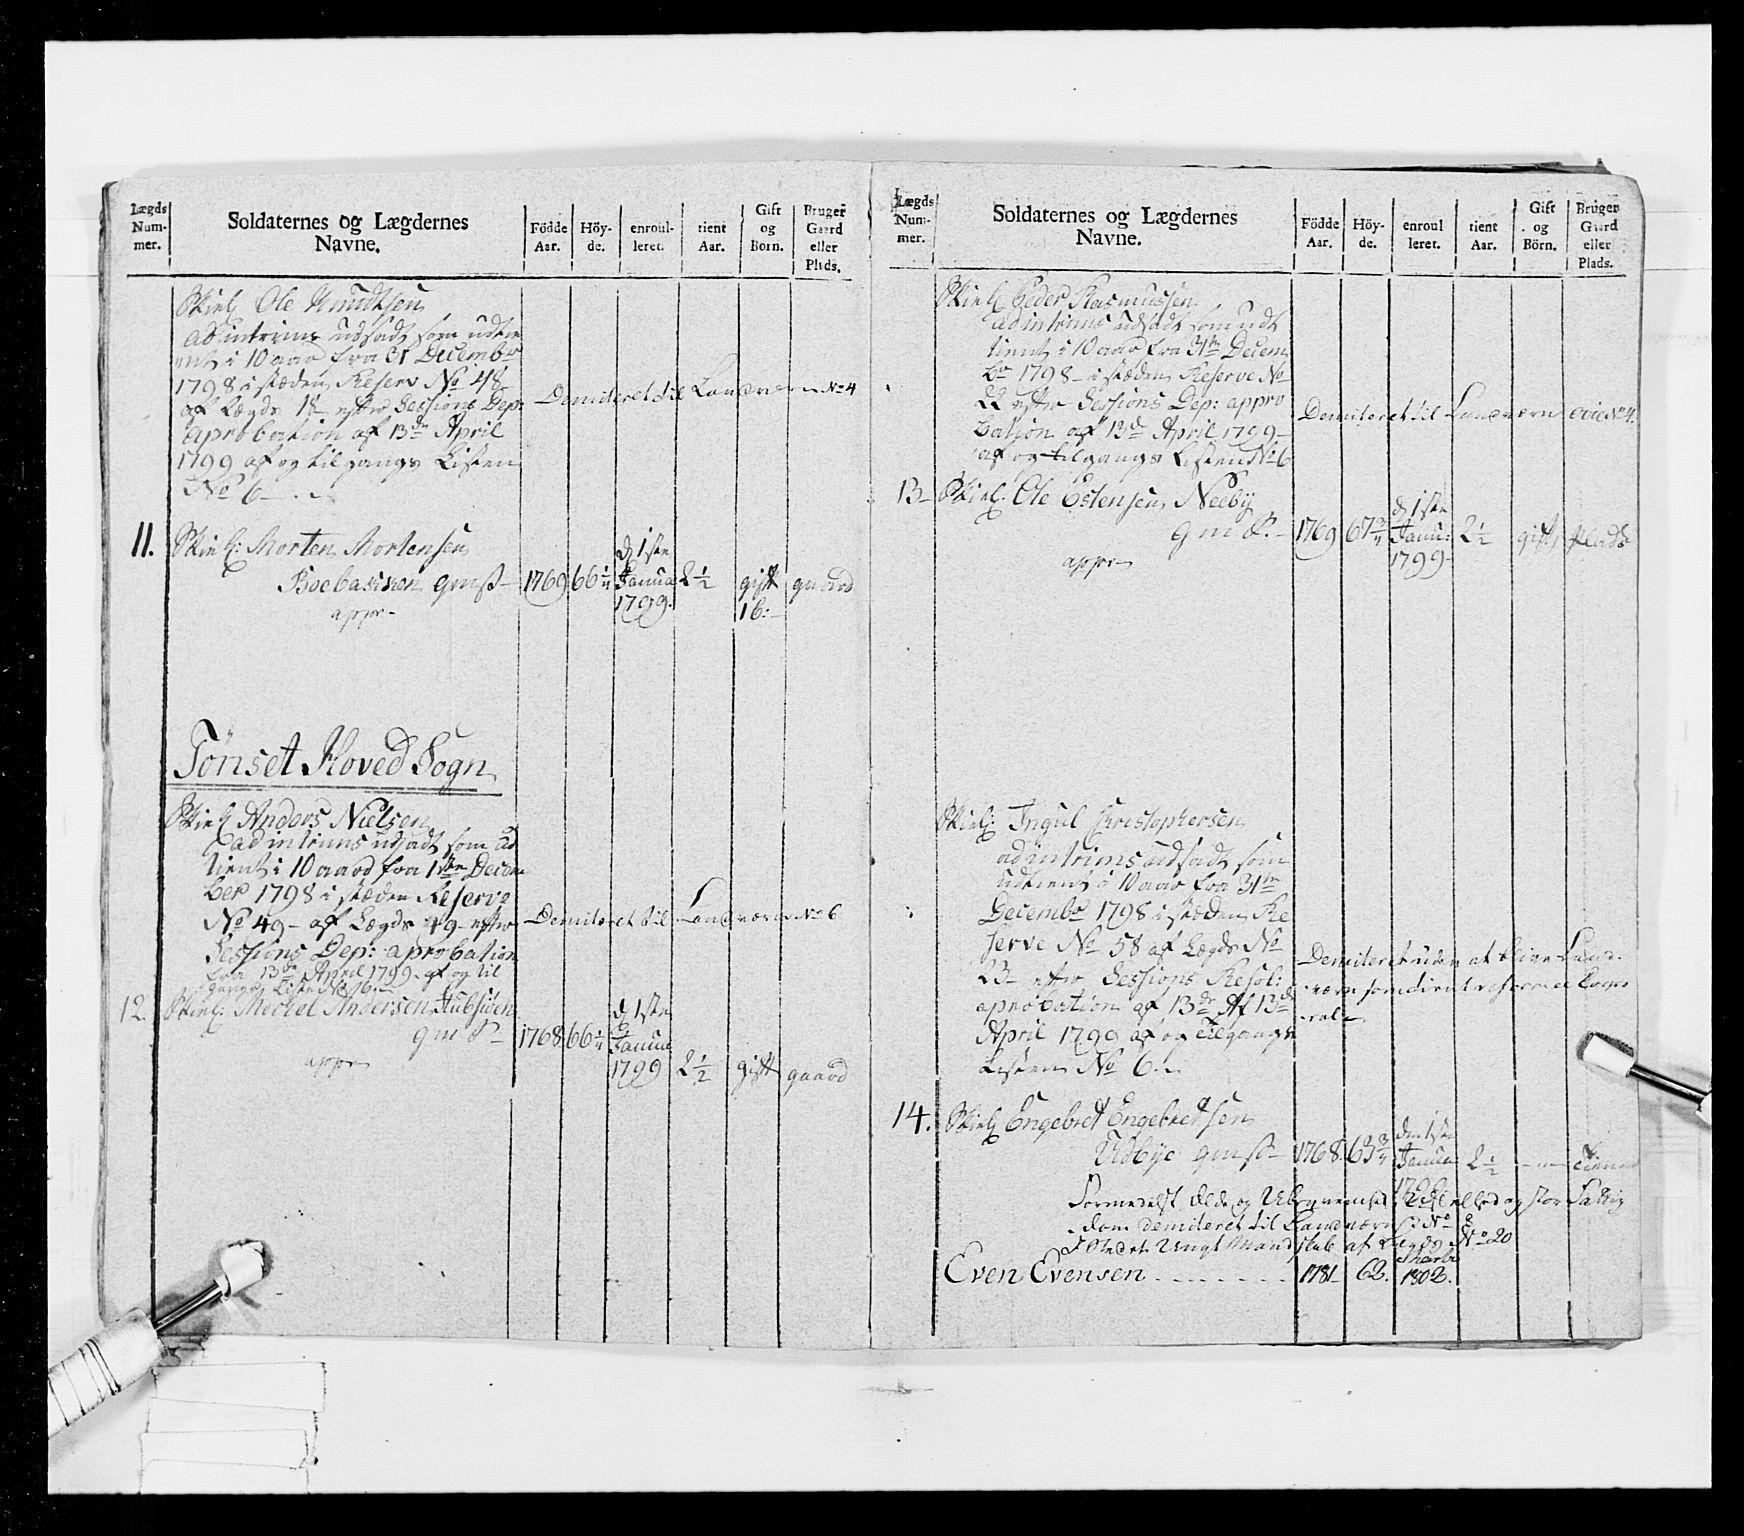 Lægds Num- mer.
Soldaternes og Lægdernes Navne.
Födde Aar.
Höy- de.
enroul- leret.
tient Aar.
Gift og Börn.
Bruger Gaard eller Plads.
Skiel Ole Knudtsen
ad intrims udsadt som udti
ent i 10 aar fra 31 Decembr
1798 i stæden Reserv No 48
af Lægds 18 efter Sessions Dep:
aprobation af 13de April
1799 af og tilgangs Listen
No 6
Demiteret til Landværn No 4
11. Skiel: Morten Mortensen
Boebakken gmst 1769 66 1/4 d 1ste Janua 1799. 2 1/2 gift 1 b: gaard
appr
Tönset Hoved Sogn
Skiel Anders Nielsen
ad intrims udsadt som ud
tient i 10 aar fra 1ste Decem
ber 1798 i stæden Reserve
No 49 af Lægds 19 efter
Sessions Dep: aprobation
fra 13de April 1799 af og til
gangs Listen No 6
Demiteret til Landværn No 6
12. Skiel: Mickel Andersen
gmst 1768 66 1/4 d 1ste Janua 1799 2 1/2 gift gaard
appr
Lægds Num- mer.
Soldaternes og Lægdernes Navne.
Födde Aar.
Höy- de.
enroul leret.
tient Aar.
Gift og Börn.
Bruger Gaard eller Plads.
Skiel Peder Rasmussen
ad intrims udsadt som udt
tient i 10 aar fra 31te Decem
br 1798 i stæden Reserve No
22 efter Sessions Dep: appro
bation af 13de April 1799
af og tilgangs Listen No 6
Demiteret til Landværn No 4.
13 Skiel: Ole Estensen Neeby
gmst. 1769 67 3/4 d 1ste Janu: 1799 2 1/2 gift plads
appr
Skiel: Ingul Christophersen
ad intrims udsadt som
udtient i 10 aar fra 31te
Decembr 1798 i stæden Re
serve No 58 af Lægds No
23 efter Sessions Resol:
aprobation af 13de Af 13de
April 1799 af og tilgangs
Listen No 6.
Demiteret uden at blive Land-
værn som tient Corpo
rale
14. Skiel Engebret Engebretsen
Udbye gmst 1768 63 3/4 den 1ste Janua 1799 2 1/2 tiener
Formedelst Elde og og stor Fattig
dom demiteret til Landværn No 8
I Stedet Ungt Mandskab af Lægds No 20
Even Evensen 1781 62. 1802.